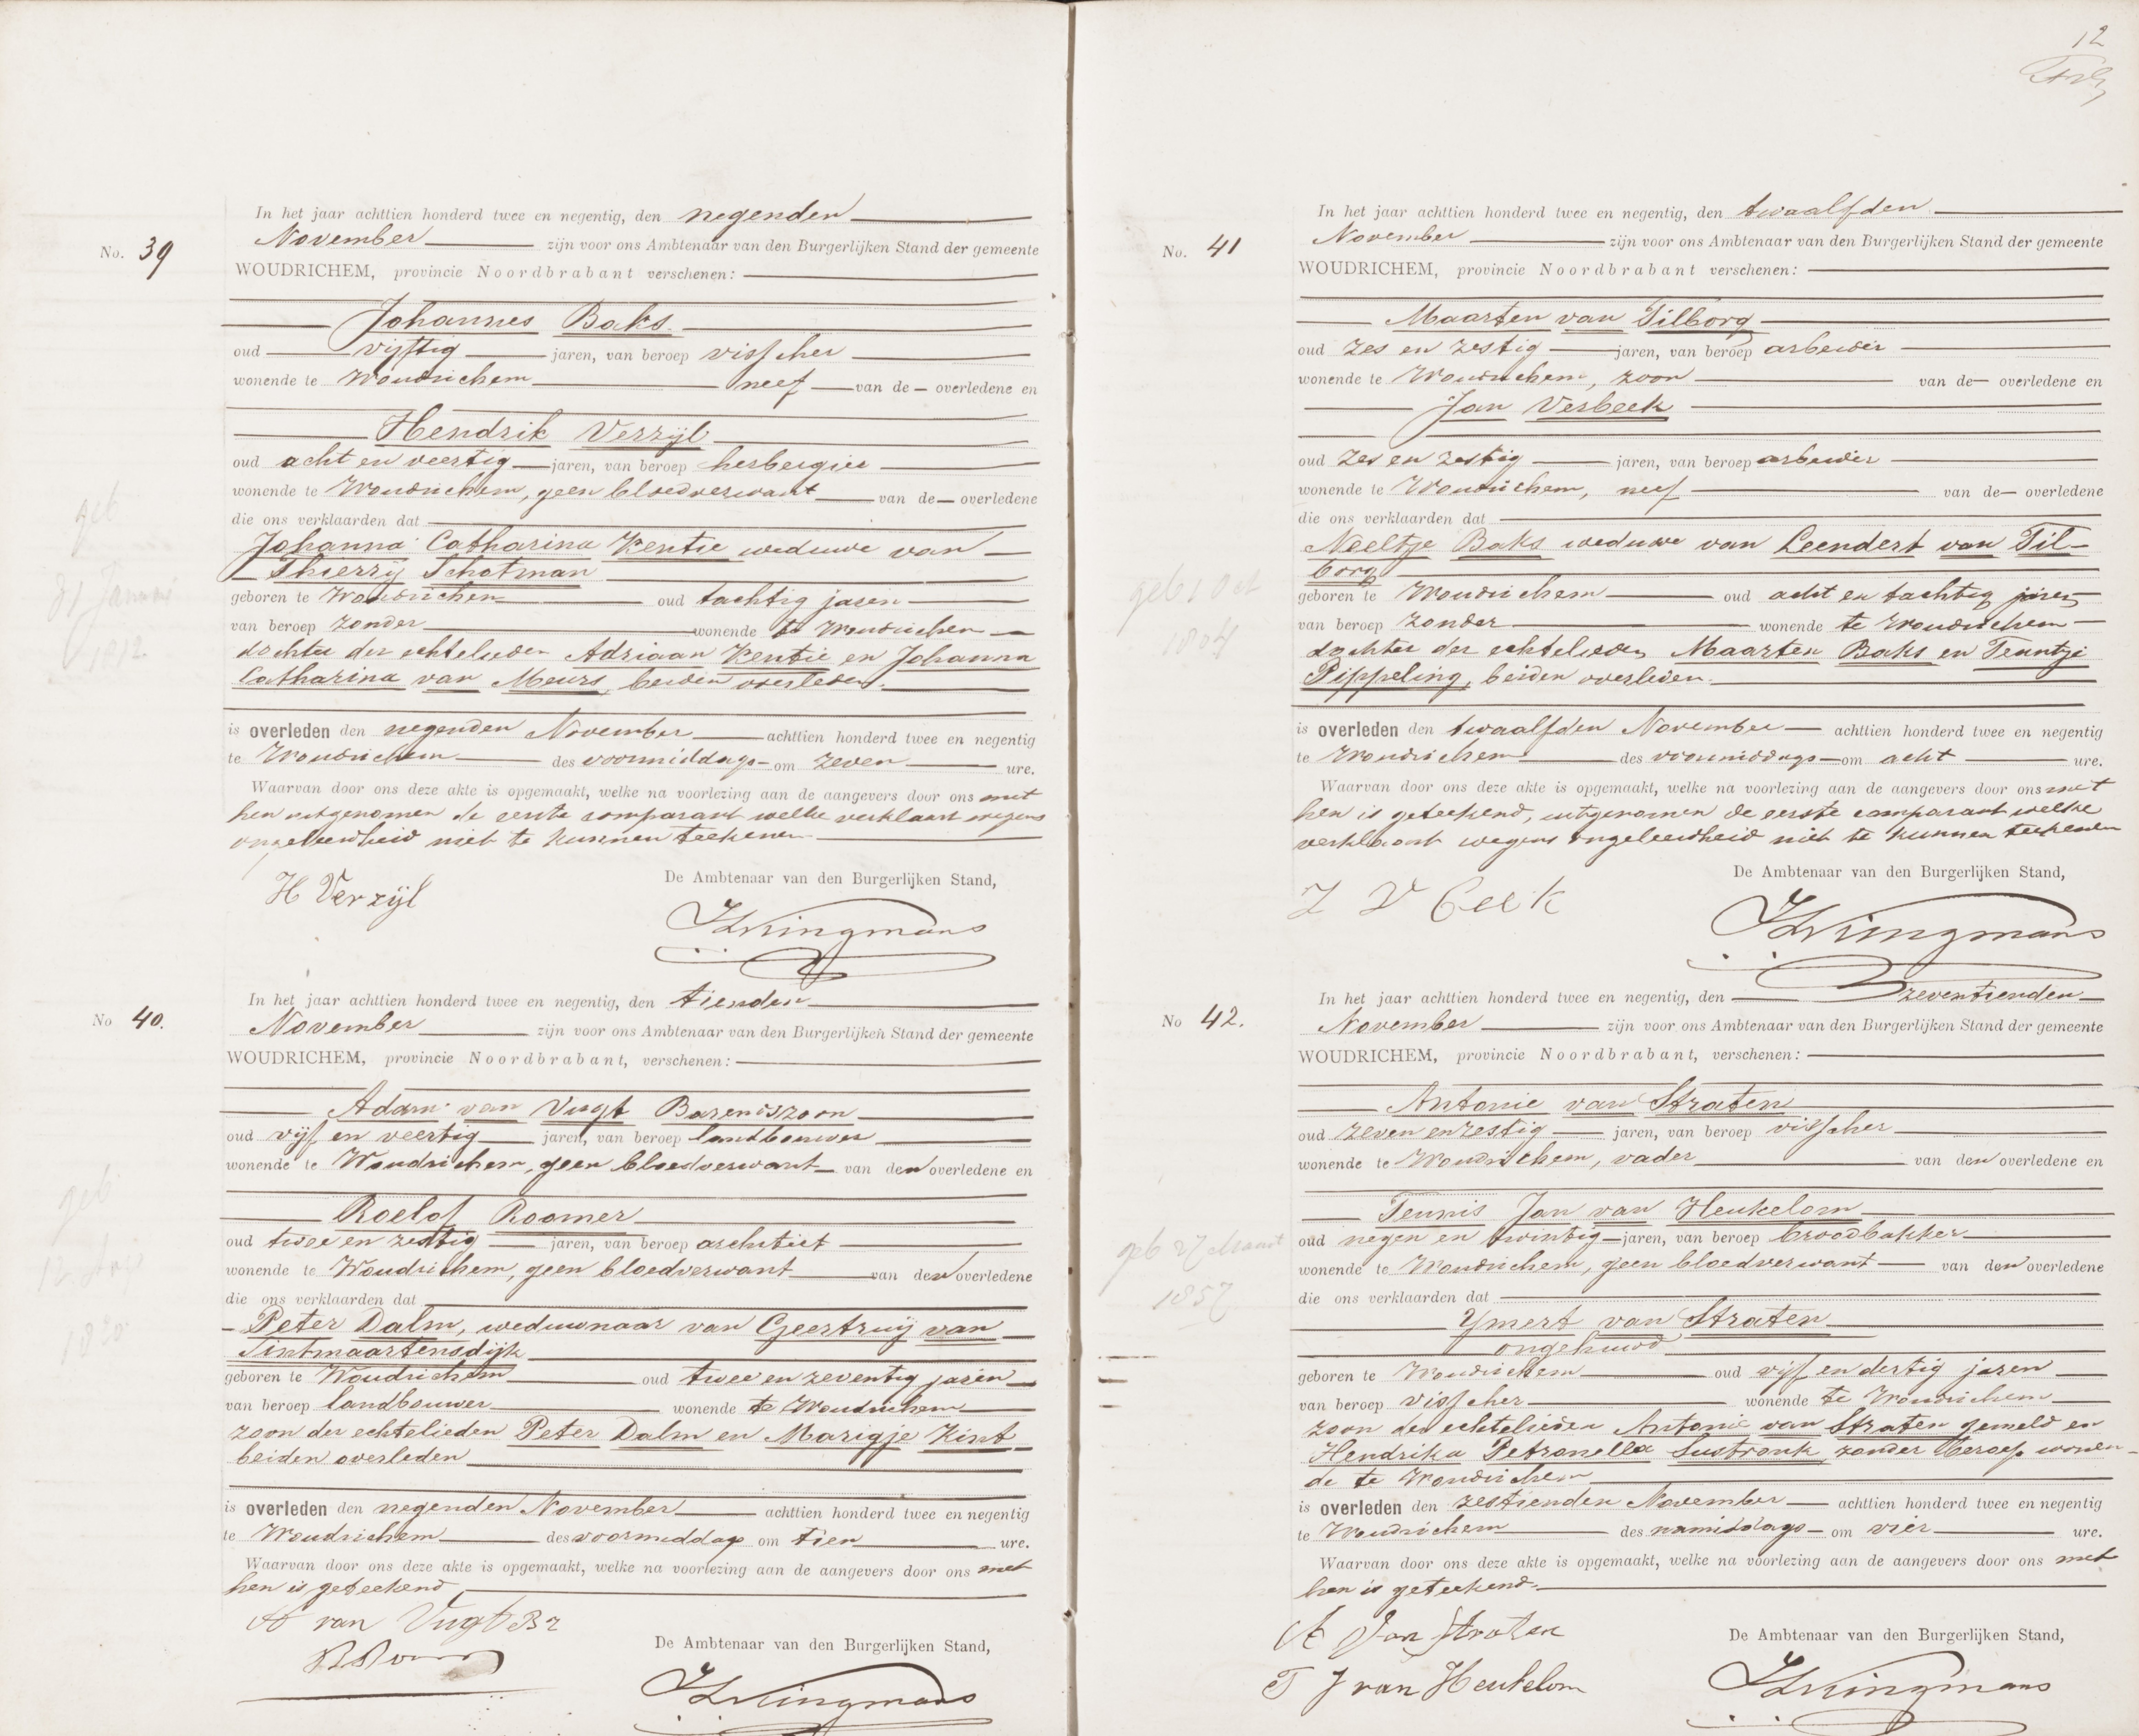 In het jaar achttien honderd twee en negentig, den negenden
No. 39
November zijn voor ons Ambtenaar van den Burgerlijken Stand der gemeente
WOUDRICHEM, provincie Noordbrabant verschenen:
Johannes Baks
oud vijftig jaren, van beroep visscher
wonende te Woudrichem neef van de overledene en
Hendrik Verzijl
oud acht en veertig jaren, van beroep herbergier
wonende te Woudrichem, geen bloedverwant van de overledene
die ons verklaarden dat
Johanna Catharina Kentie weduwe van
Thierry Schotman
geboren te Woudrichem oud tachtig jaren
van beroep zonder wonende te Woudrichem
dochter der echtelieden Adriaan Kentie en Johanna
Catharina van Meurs, beiden overleden.
is overleden den negenden November achttien honderd twee en negentig
te Woudrichem des voormiddags om zeven ure.
Waarvan door ons deze akte is opgemaakt, welke na voorlezing aan de aangevers door ons met
hen uitgenomen de eerste comparant welke verklaart wegens
ongeleerdheid niet te kunnen teekenen
De Ambtenaar van den Burgerlijken Stand,
H Verzijl
geb
31 Januari
1812
In het jaar achttien honderd twee en negentig, den tienden
No 40.
November zijn voor ons Ambtenaar van den Burgerlijken Stand der gemeente
WOUDRICHEM, provincie Noordbrabant, verschenen:
Adam van Vugt Barendszoon
oud vijf en veertig jaren, van beroep landbouwer
wonende te Woudrichem, geen bloedverwant van den overledene en
Roelof Roomer
oud twee en zestig jaren, van beroep architect
wonende te Woudrichem, geen bloedverwant van den overledene
die ons verklaarden dat
Peter Dalm, weduwnaar van Geertruij van
Sintmaartensdijk
geboren te Woudrichem oud twee en zeventig jaren
van beroep landbouwer wonende te Woudrichem
zoon der echtelieden Peter Dalm en Marigje Kint
beiden overleden
is overleden den negenden November achttien honderd twee en negentig
te Woudrichem des voormiddags om tien ure.
Waarvan door ons deze akte is opgemaakt, welke na voorlezing aan de aangevers door ons met
hen is geteekend
A van Vugt Bz
De Ambtenaar van den Burgerlijken Stand,
geb
1820
12
In het jaar achttien honderd twee en negentig, den twaalfden
No. 41
November zijn voor ons Ambtenaar van den Burgerlijken Stand der gemeente
WOUDRICHEM, provincie Noordbrabant verschenen:
Maarten van Tilborg
oud zes en zestig jaren, van beroep arbeider
wonende te Woudrichem, zoon van de overledene en
Jan Verbeek
oud zes en zestig jaren, van beroep arbeider
wonende te Woudrichem, neef van de overledene
die ons verklaarden dat
Neeltje Baks weduwe van Leendert van Til-
borg
geboren te Woudrichem oud acht en tachtig jaren
van beroep zonder wonende te Woudrichem
dochter der echtelieden Maarten Baks en Teuntje
Pippeling, beiden overleden.
is overleden den twaalfden November achttien honderd twee en negentig
te Woudrichem des voormiddags om acht ure.
Waarvan door ons deze akte is opgemaakt, welke na voorlezing aan de aangevers door ons met
hen is geteekend, uitgenomen de eerste comparant welke
verklaart wegens ongeleerdheid niet te kunnen teekenen
De Ambtenaar van den Burgerlijken Stand,
geb 1 Oct
1804
In het jaar achttien honderd twee en negentig, den zeventienden
No 42.
November zijn voor ons Ambtenaar van den Burgerlijken Stand der gemeente
WOUDRICHEM, provincie Noordbrabant, verschenen:
Antonie van Straten
oud zeven en zestig jaren, van beroep visscher
wonende te Woudrichem, vader van den overledene en
Teunis Jan van Heukelom
oud negen en twintig jaren, van beroep broodbakker
wonende te Woudrichem, geen bloedverwant van den overledene
die ons verklaarden dat
Ymert van Straten
ongehuwd
geboren te Woudrichem oud vijf en dertig jaren
van beroep visscher wonende te Woudrichem
zoon der echtelieden Antonie van Straten gemeld en
Hendrika Petronella zonder beroep wonen-
de te Woudrichem
is overleden den zestienden November achttien honderd twee en negentig
te Woudrichem des namiddags om vier ure.
Waarvan door ons deze akte is opgemaakt, welke na voorlezing aan de aangevers door ons met
hen is geteekend.
A van Straten
De Ambtenaar van den Burgerlijken Stand,
T J van Heukelom
geb 27 Maart
1857